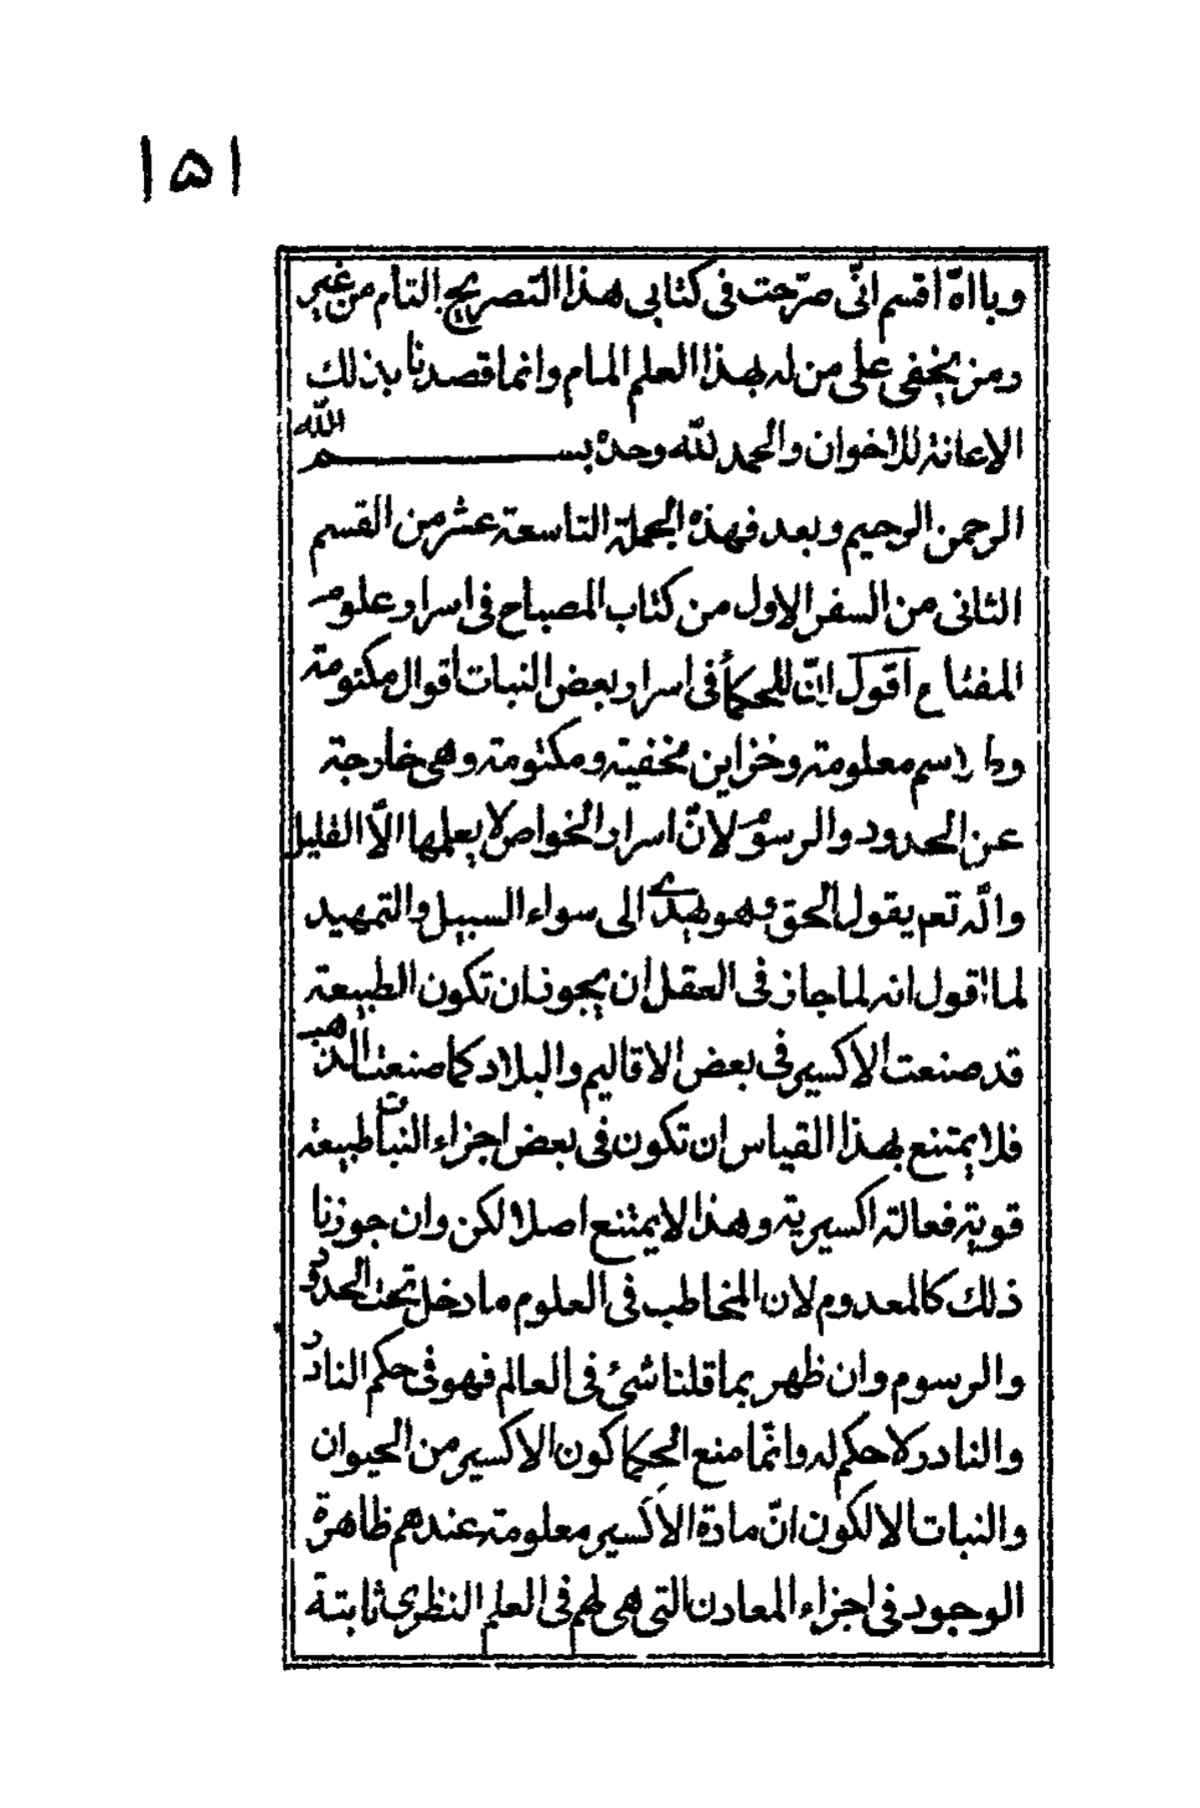 ١٥١
وبالله اقسم انّى صرّحت فى كتابى هذا التصريح التام من غير
رمز يخفى على من له بهذا العلم المام وانما قصدنا بذلك
الاعانة للاخوان والحمد لله وحده بسم الله
الرحمن الرحيم وبعد فهذه الجملة التاسعة عشر من القسم
الثانى من السفر الاول من كتاب المصباح فى اسرار علوم
المفتاح اقول انّ للحكمأ فى اسرار بعض النبات اقوال مكتومة
معلومة وخزاين مخفية ومكتومة وهى خارجة
عن الحدود والرسوم لانّ اسرار الخواص لا يعلمها الّا القليل
والله تعم يقول الحق وهو يهدى الى سواء السبيل والتمهيد
لما اقول انه لما جاز فى العقل ان يجوز ان تكون الطبيعة
قد صنعت الاكسير فى بعض الاقاليم والبلاد كما صنعت الذهب
فلا يمتنع بهذا القياس ان تكون فى بعض اجزاء النبات طبيعة
قوية فعالة اكسيرية وهذا لا يمتنع اصلا لكن وان جوزنا
ذلك كالمعدوم لان المخاطب فى العلوم ما دخل تحت الحدود
والرسوم وان ظهر بما قلنا شئ فى العالم فهو فى حكم النادر
والنادر لا حكم له وانّما منع الحكما كون الاكسير من الحيوان
والنبات الا لكون انّ مادة الاكسير معلومة عندهم ظاهرة
الوجود فى اجزاء المعادن التى هى لهم فى العلم النظرى ثابتة